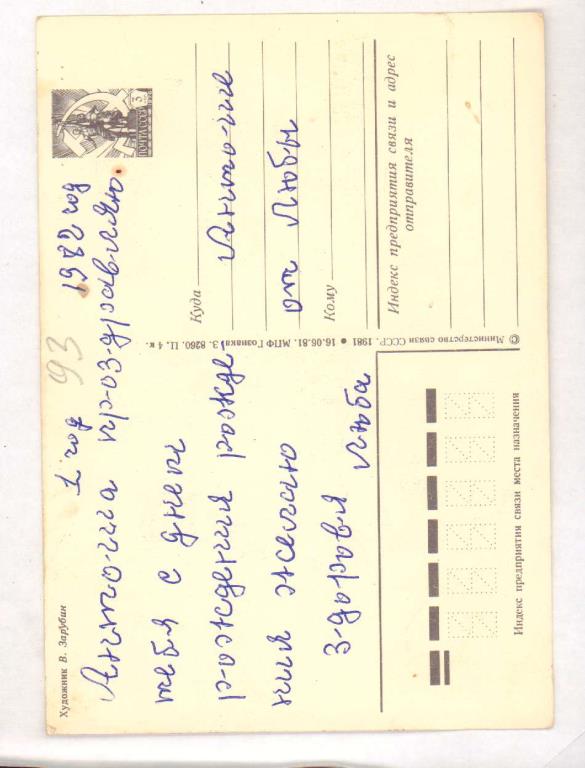 Художник В. Зарубин
93
1 год 1982 год
Антошка проздравляю.
тебя с днем
рождения рожде
ния желаю
здоровя Люба
© Министерство связи СССР. 1981 ● 16.06.81. МПФ Гознака. З. 8260. Ц. 4 к.
3
ПОЧТА СССР
Куда
Антошке
от Любы
Кому
Индекс предприятия связи и адрес
отправителя
Индекс предприятия связи места назначения